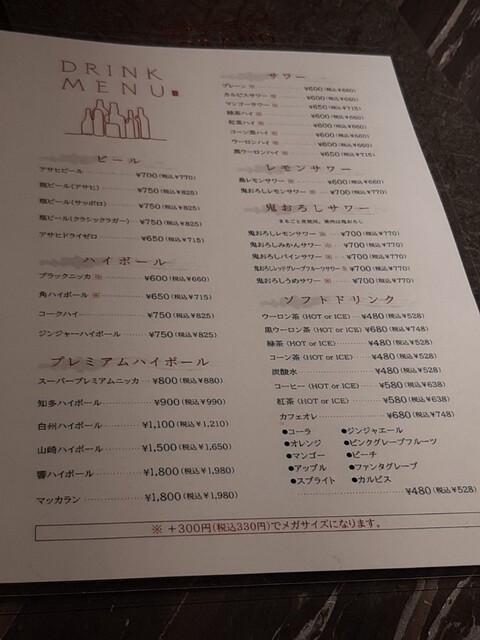 DRINK
MENU
ビール
アサヒビール ¥700(税込¥770)
瓶ビール(アサヒ) ¥750(税込¥825)
瓶ビール(サッポロ) ¥750(税込¥825)
瓶ビール(クラシックラガー) ¥750(税込¥825)
アサヒドライゼロ ¥650(税込¥715)
ハイボール
ブラックニッカ ※ ¥600(税込¥660)
角ハイボール ※ ¥650(税込¥715)
コークハイ ¥750(税込¥825)
ジンジャーハイボール ¥750(税込¥825)
プレミアムハイボール
スーパープレミアムニッカ ¥800(税込¥880)
知多ハイボール ¥900(税込¥990)
白州ハイボール ¥1,100(税込¥1,210)
山崎ハイボール ¥1,500(税込¥1,650)
響ハイボール ¥1,800(税込¥1,980)
マッカラン ¥1,800(税込¥1,980)
サワー
プレーン ※ ¥600(税込¥660)
カルピスサワー ※ ¥600(税込¥660)
マンゴーサワー ※ ¥650(税込¥715)
緑茶ハイ ※ ¥600(税込¥660)
紅茶ハイ ※ ¥600(税込¥660)
コーン茶ハイ ※ ¥600(税込¥660)
ウーロンハイ ※ ¥600(税込¥660)
黒ウーロンハイ ※ ¥650(税込¥715)
レモンサワー
レモンサワー ※ ¥600(税込¥660)
鬼おろしレモンサワー ※ ¥700(税込¥770)
鬼おろしサワー
まるごと皮使用、果肉は鬼おろし
鬼おろしレモンサワー ※ ¥700(税込¥770)
鬼おろしみかんサワー ※ ¥700(税込¥770)
鬼おろしパインサワー ※ ¥700(税込¥770)
鬼おろしレッドグレープフルーツサワー ※ ¥700(税込¥770)
鬼おろしうめサワー ※ ¥700(税込¥770)
ソフトドリンク
ウーロン茶 (HOT or ICE) ¥480(税込¥528)
黒ウーロン茶 (HOT or ICE) ¥680(税込¥748)
緑茶 (HOT or ICE) ¥480(税込¥528)
コーン茶 (HOT or ICE) ¥480(税込¥528)
炭酸水 ¥480(税込¥528)
コーヒー (HOT or ICE) ¥580(税込¥638)
紅茶 (HOT or ICE) ¥580(税込¥638)
カフェオレ ¥680(税込¥748)
●コーラ ●ジンジャエール
●オレンジ ●ピンクグレープフルーツ
●マンゴー ●ピーチ
●アップル ●ファンタグレープ
●スプライト ●カルピス
¥480(税込¥528)
※ +300円(税込330円)でメガサイズになります。